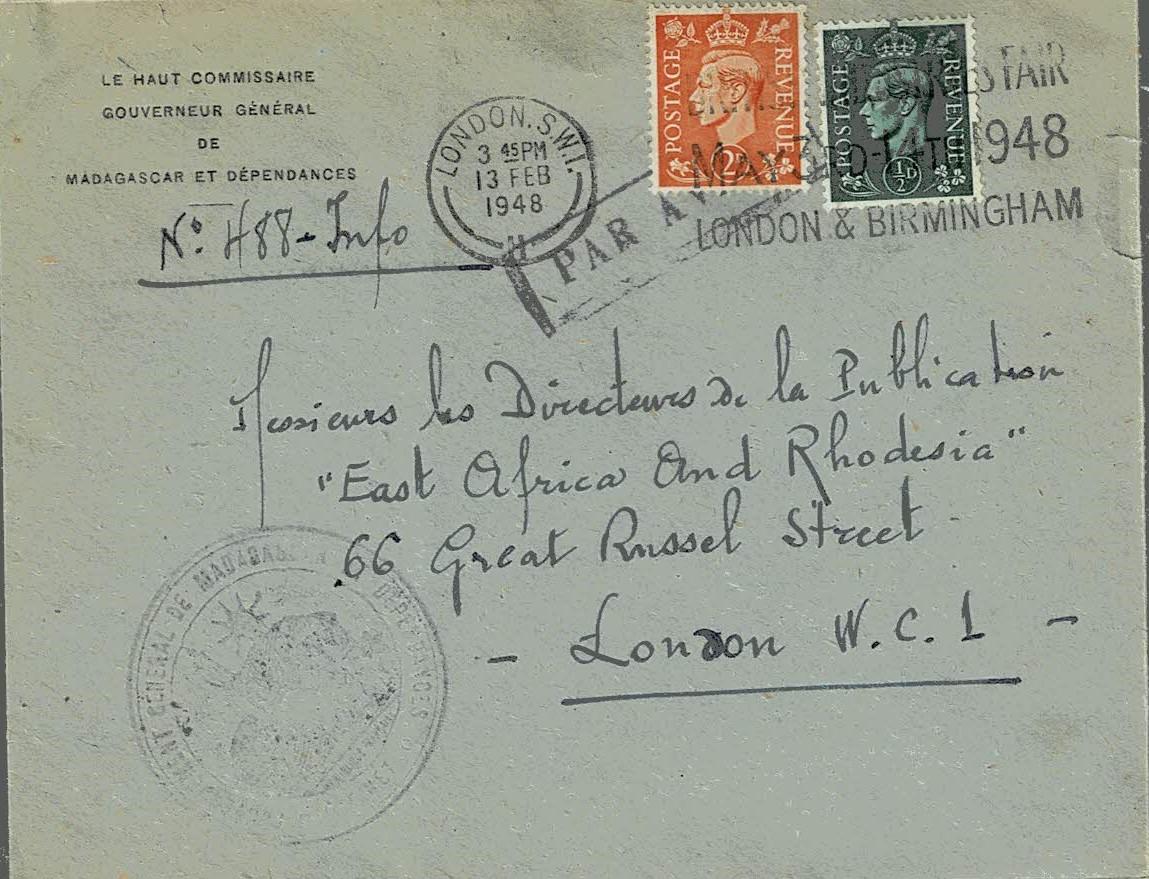 LE HAUT COMMISSAIRE
GOUVERNEUR GÉNÉRAL
DE
MADAGASCAR ET DÉPENDANCES
Nº 488-Info
LONDON. S.W.1.
3 45PM
13 FEB
1948
PAR
POSTAGE REVENUE
2D
POSTAGE REVENUE
½D
FAIR
MAY 1948
LONDON & BIRMINGHAM
Messieurs les Directeurs de la Publication
"East Africa And Rhodesia"
66 Great Russel Street
- London W.C.1 -
GENERAL DE MADAGASCAR DEPENDANCES